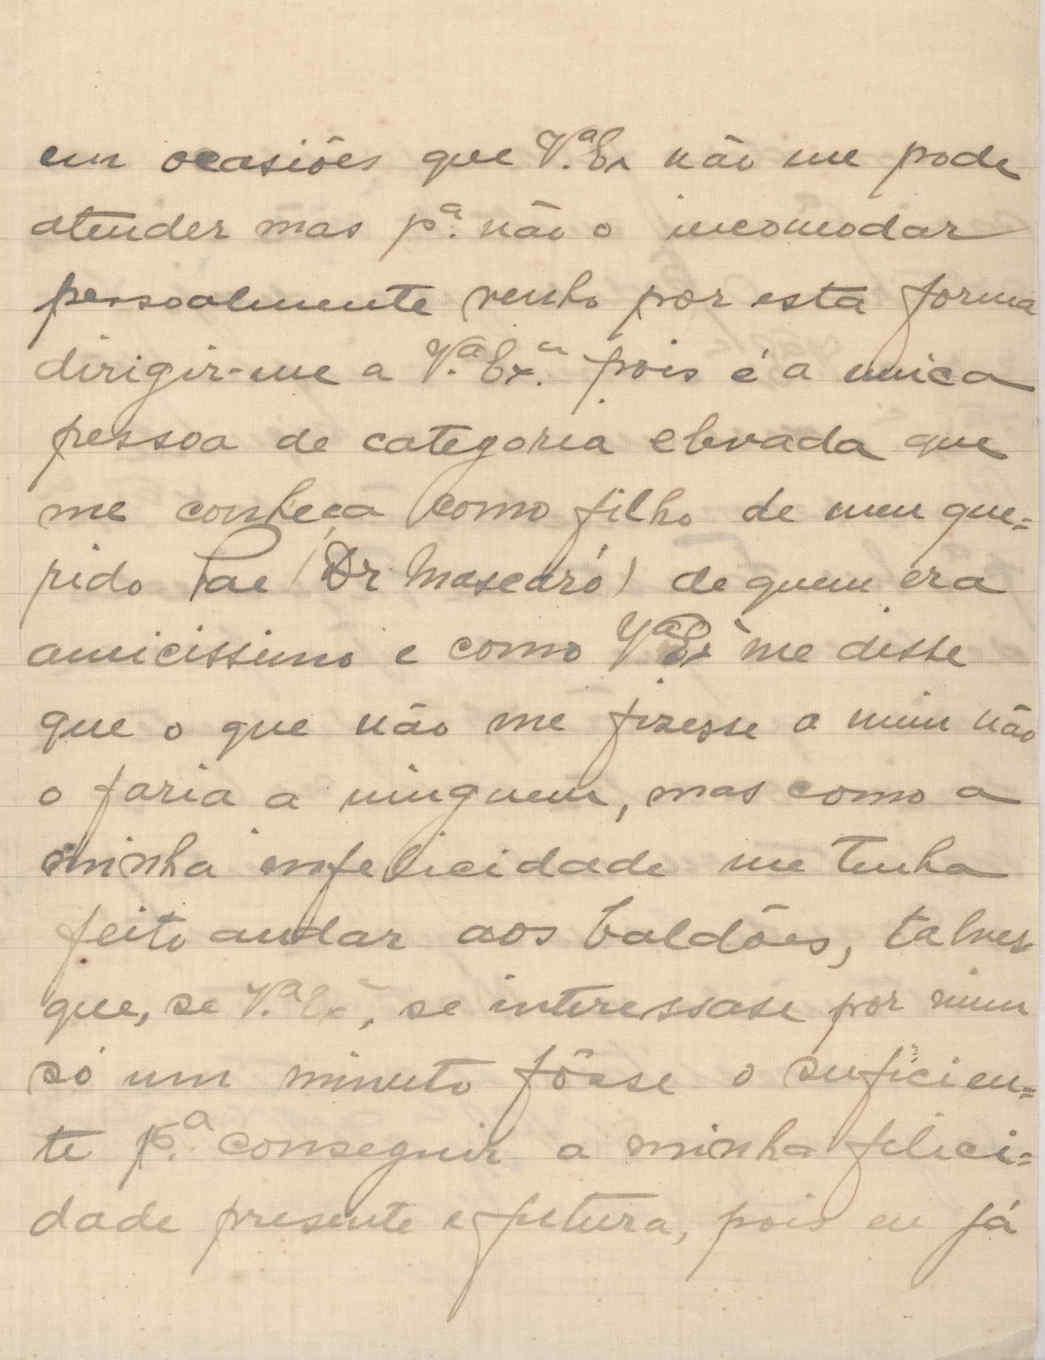 em ocasiões que V.ª Ex não me pode
atender mas p.ª não o incomodar
pessoalmente venho por esta forma
dirigir-me a V.ª Ex.ª pois é a unica
pessoa de categoria elevada que
me conheça como filho de meu que=
rido Pae (Dr Mascaró) de quem era
amicissimo e como V.ª Exª me disse
que o que não me fizesse a mim não
o faria a ninguem, mas como a
minha infelicidade me tenha
feito andar aos baldões, talvez
que, se V.ª Exª, se interessase por mim
só um minuto fôsse o suficien=
te p.ª conseguir a minha felici=
dade presente e futura, pois eu já